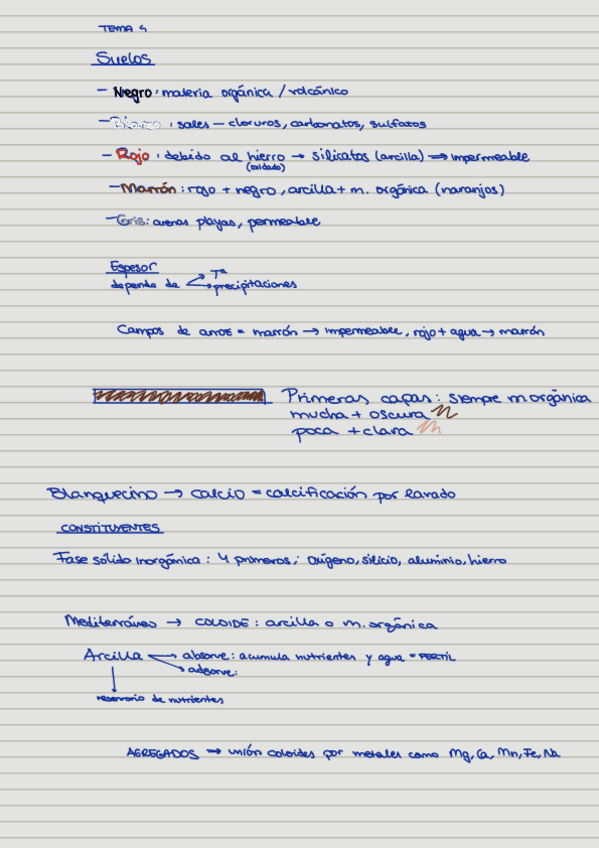 TEMA 4
Suelos
- Negro: materia orgánica / volcánico
- Blanco: sales - cloruros, carbonatos, sulfatos
- Rojo: debido al hierro → silicatos (arcilla) ⇒ impermeable
(oxidado)
- Marrón: rojo + negro, arcilla + m. orgánica (naranjos)
- Gris: arenas playas, permeable
Espesor
depende de → Tª
→ precipitaciones
Campos de arroz = marrón → impermeable, rojo + agua → marrón
Primeras capas: siempre m orgánica
mucha + oscura
poca + clara
Blanquecino → calcio = calcificación por lavado
CONSTITUYENTES
Fase sólido inorgánica: 4 primeros; oxígeno, silicio, aluminio, hierro
Mediterráneo → COLOIDE: arcilla o m. orgánica
Arcilla → absorve: acumula nutrientes y agua = FERTIL
→ adsorve:
reservorio de nutrientes
AGREGADOS → unión coloides por metales como Mg, Ca, Mn, Fe, Na